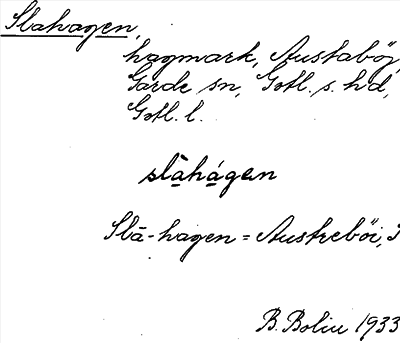 Slahagen,
hagmark, Austaböj,
Garde sn, Gotl. s. hd,
Gotl. l.
slàhágen
Slā-hagen = Austreböi,
B. Bolin 1933